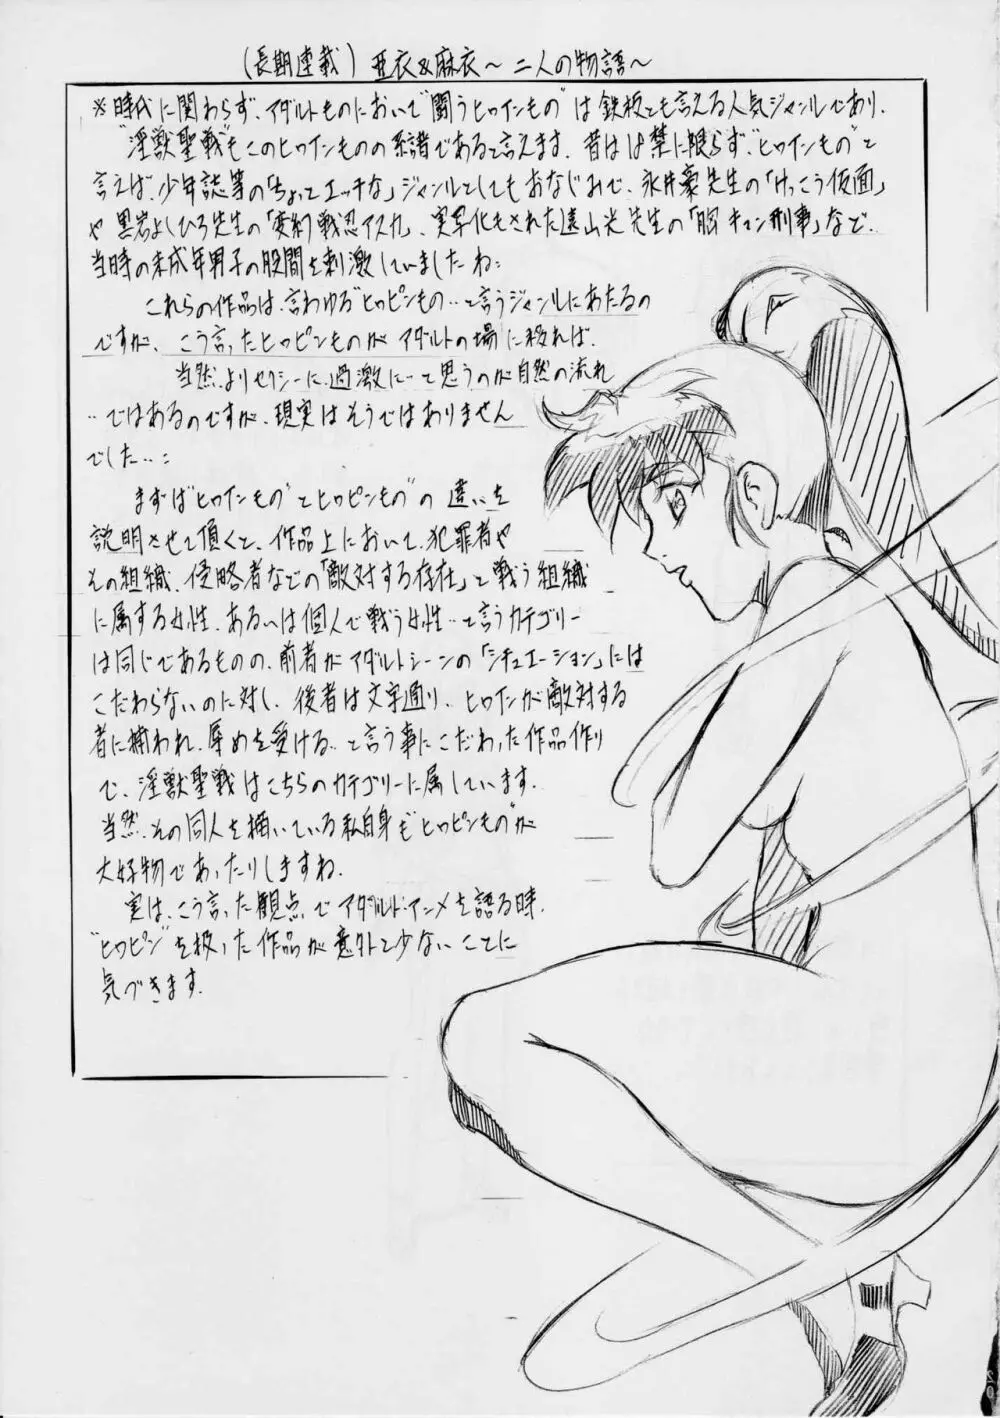 (長期連載) 亜衣&麻衣～二人の物語～
※時代に関わらず、アダルトものにおいて"闘うヒロインもの"は鉄板とも言える人気ジャンルであり、
"淫獣聖戦"もこのヒロインものの系譜であると言えます。昔は18禁に限らず、"ヒロインもの"と
言えば、少年誌等の「ちょっとエッチな」ジャンルとしてもおなじみで、永井豪先生の「けっこう仮面」
や黒岩よしひろ先生の「変幻戦忍アスカ」、実写化もされた遠山光先生の「胸キュン刑事」など、
当時の未成年男子の股間を刺激していましたね…
これらの作品は、言わゆる"ヒロピンもの"…と言うジャンルにあたるの
ですが、こう言ったヒロピンものがアダルトの場に移れば、
当然、よりセクシーに、過激に…と思うのが自然の流れ
…ではあるのですが、現実はそうではありません
でした…：
まずは"ヒロインもの"と"ヒロピンもの"の違いを
説明させて頂くと、作品上において、犯罪者や
その組織、侵略者などの「敵対する存在」と戦う組織
に属する女性、あるいは個人で戦う女性…と言うカテゴリー
は同じであるものの、前者がアダルトシーンの「シチュエーション」には
こだわらないのに対し、後者は文字通り、ヒロインが敵対する
者に捕われ、辱めを受ける…と言う事にこだわった作品作り
で、淫獣聖戦はこちらのカテゴリーに属しています。
当然、その同人を描いている私自身も"ヒロピンもの"が
大好物であったりしますね。
実は、こう言った観点でアダルトアニメを語る時、
"ヒロピン"を扱った作品が意外と少ないことに
気づきます。